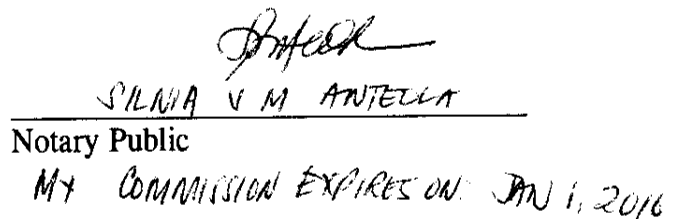 SILNIA V M ANTELLA
Notary Public
MY COMMISSION EXPIRES ON: JAN 1, 2016